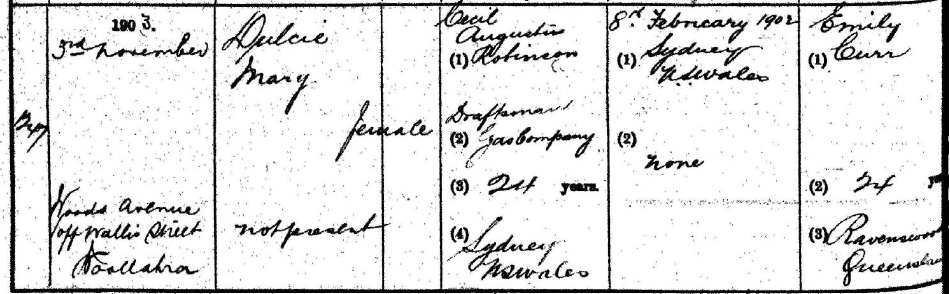 1903.
3rd November
Woods Avenue
off Wallis Street
Woollahra
Dulcie
Mary
female
not present
Cecil
Augustin
(1) Robinson
Draftsman
(2) Gas Company
(3) 24 years.
(4) Sydney
NSWales
8th February 1902
(1) Sydney
NSWales
(2)
none
Emily
(1) Curr
(2) 24
(3) Ravenswood
Queenslan